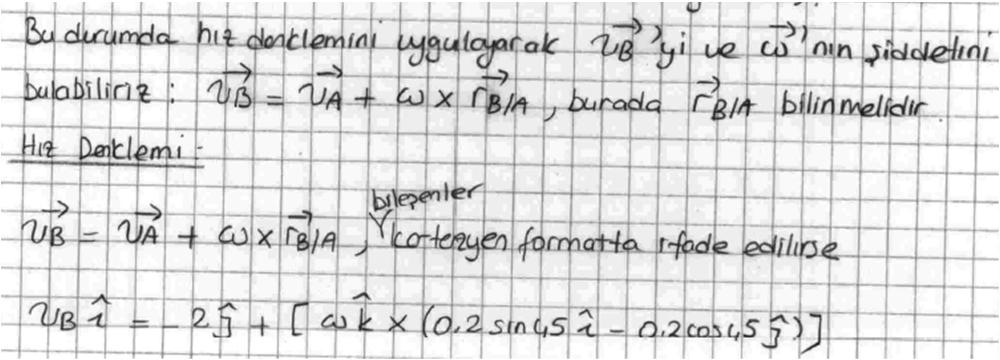 Bu durumda hız denklemini uygulayarak v⃗B'yi ve ω⃗'nın şiddetini
bulabiliriz : v⃗B = v⃗A + ω x r⃗B/A , burada r⃗B/A bilinmelidir.
Hız Denklemi :
bileşenler
v⃗B = v⃗A + ω x r⃗B/A , kartezyen formatta ifade edilirse
vB î = - 2 ĵ + [ ω k̂ x (0.2 sin45 î - 0.2 cos45 ĵ)]